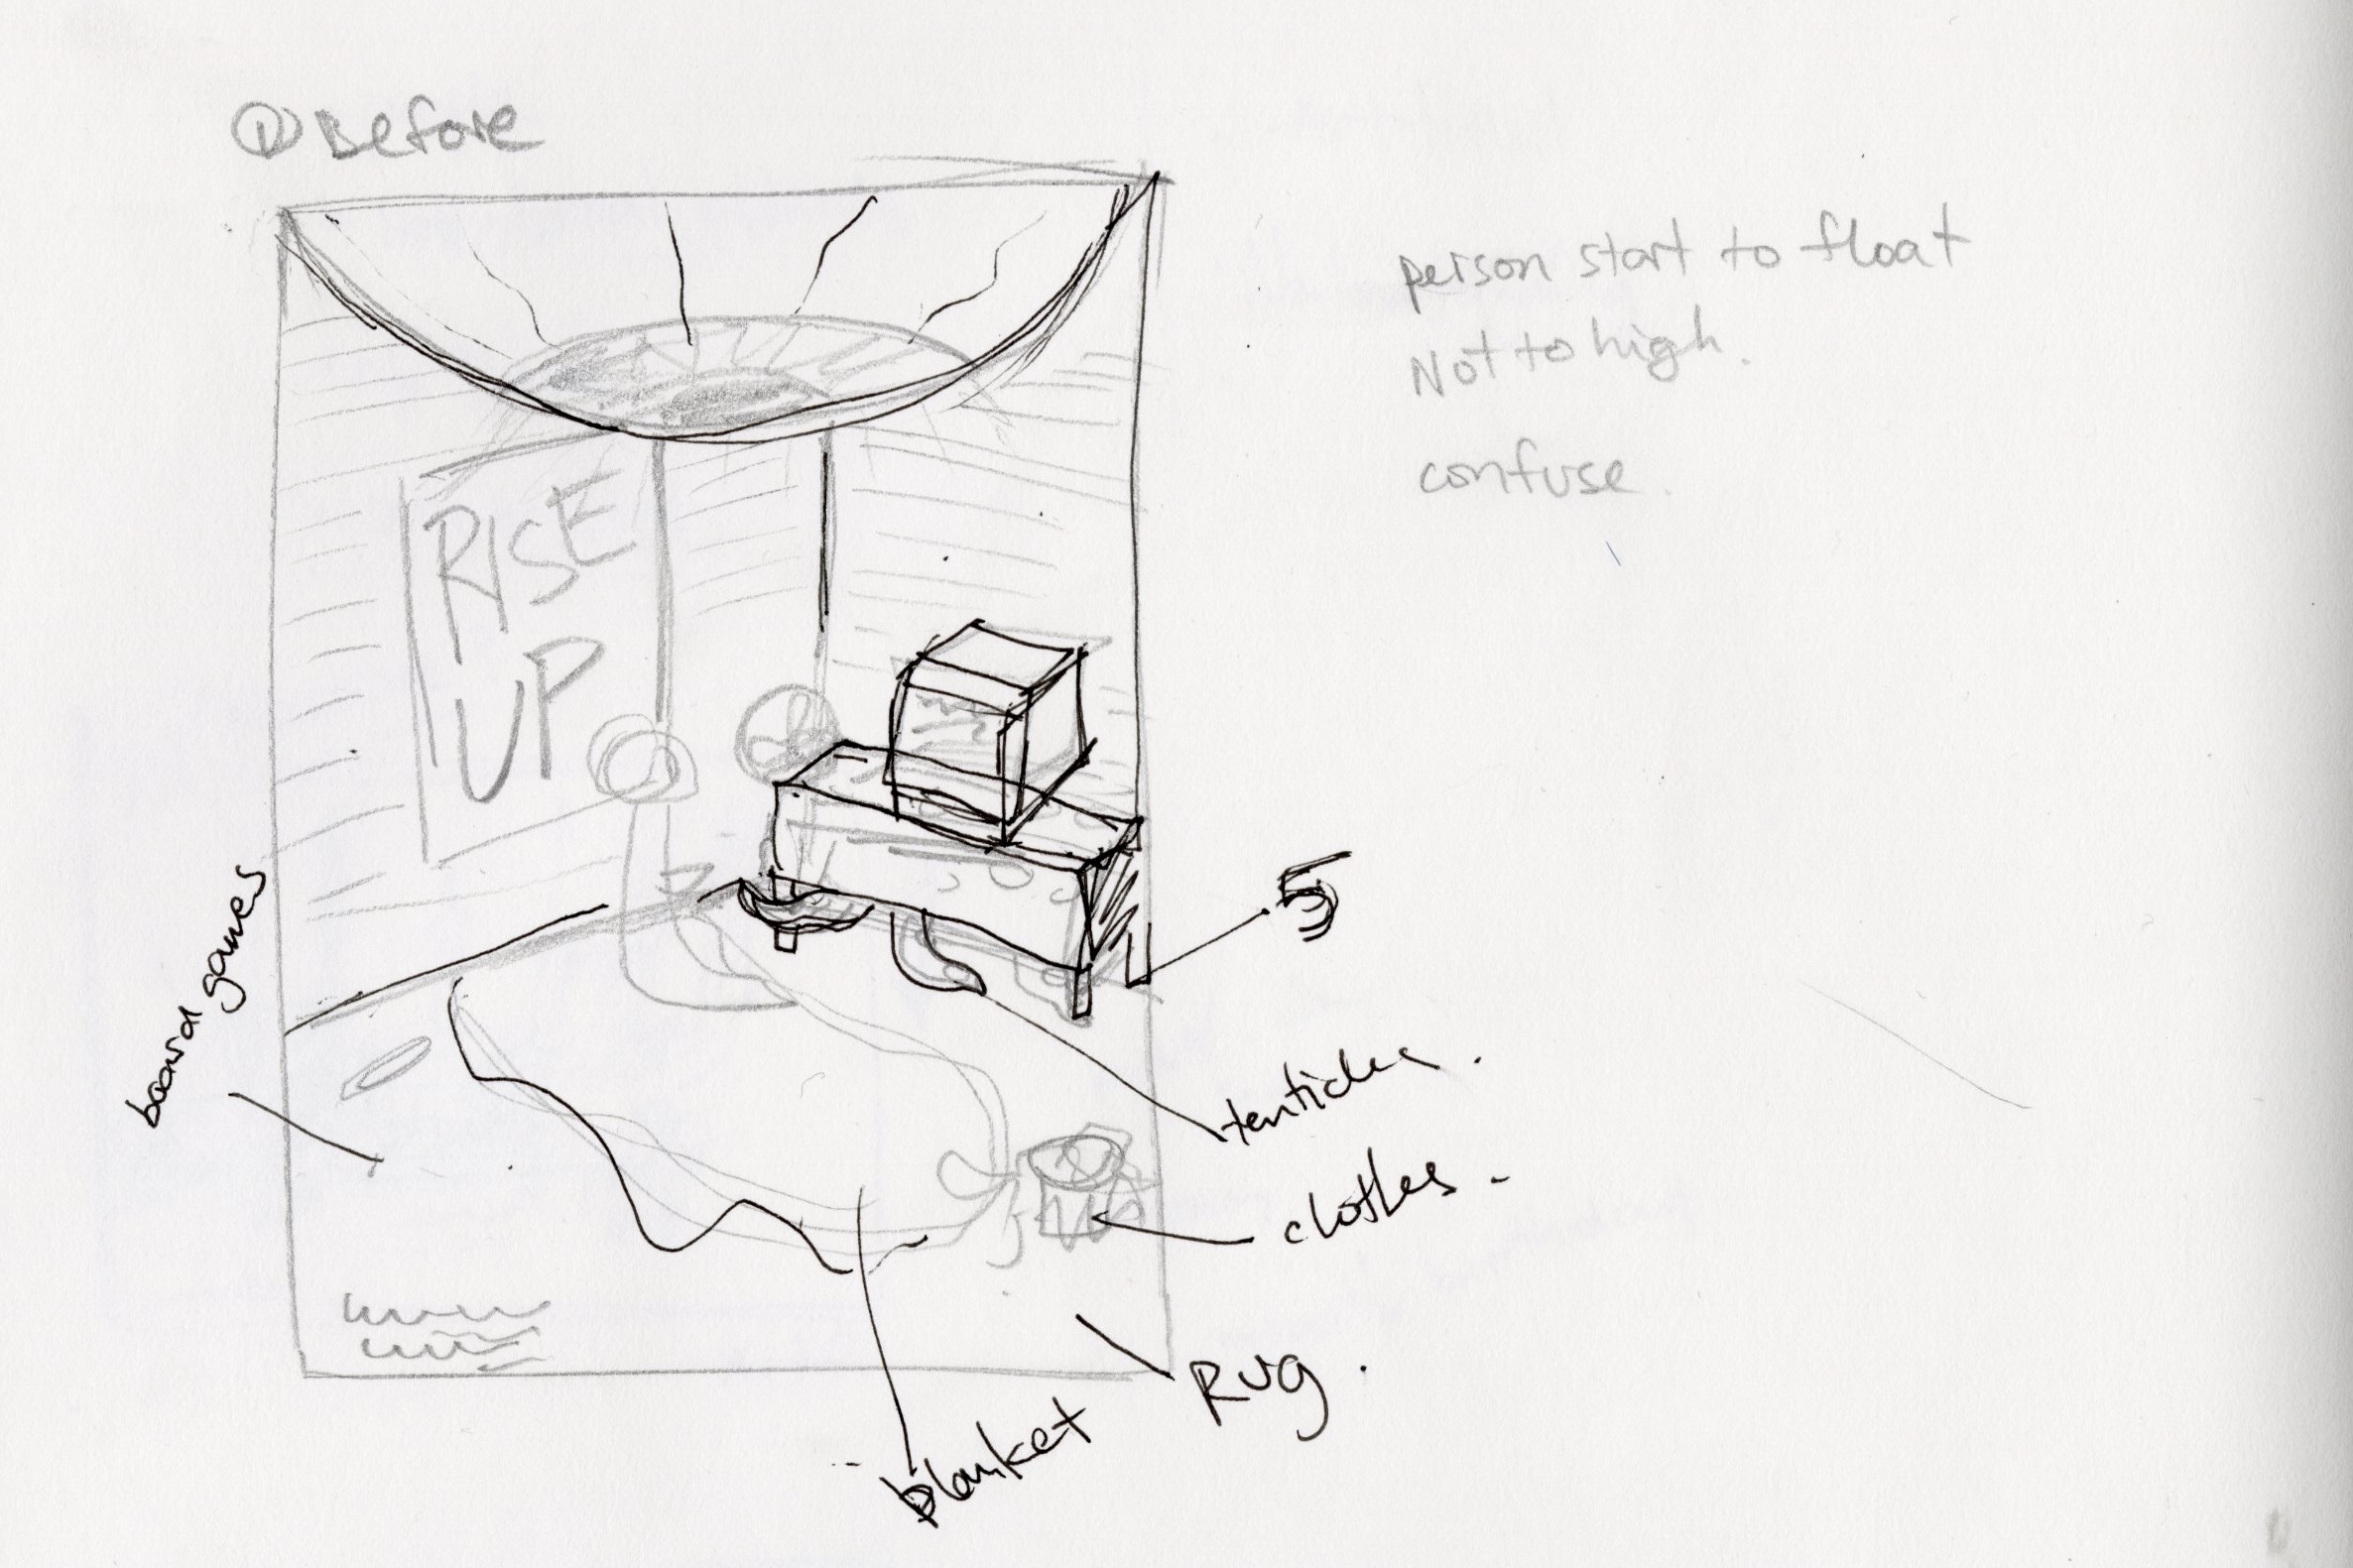 ① Before
person start to float
Not to high.
confuse.
RISE
UP
board games
5
tenticles.
clothes.
Rug.
blanket